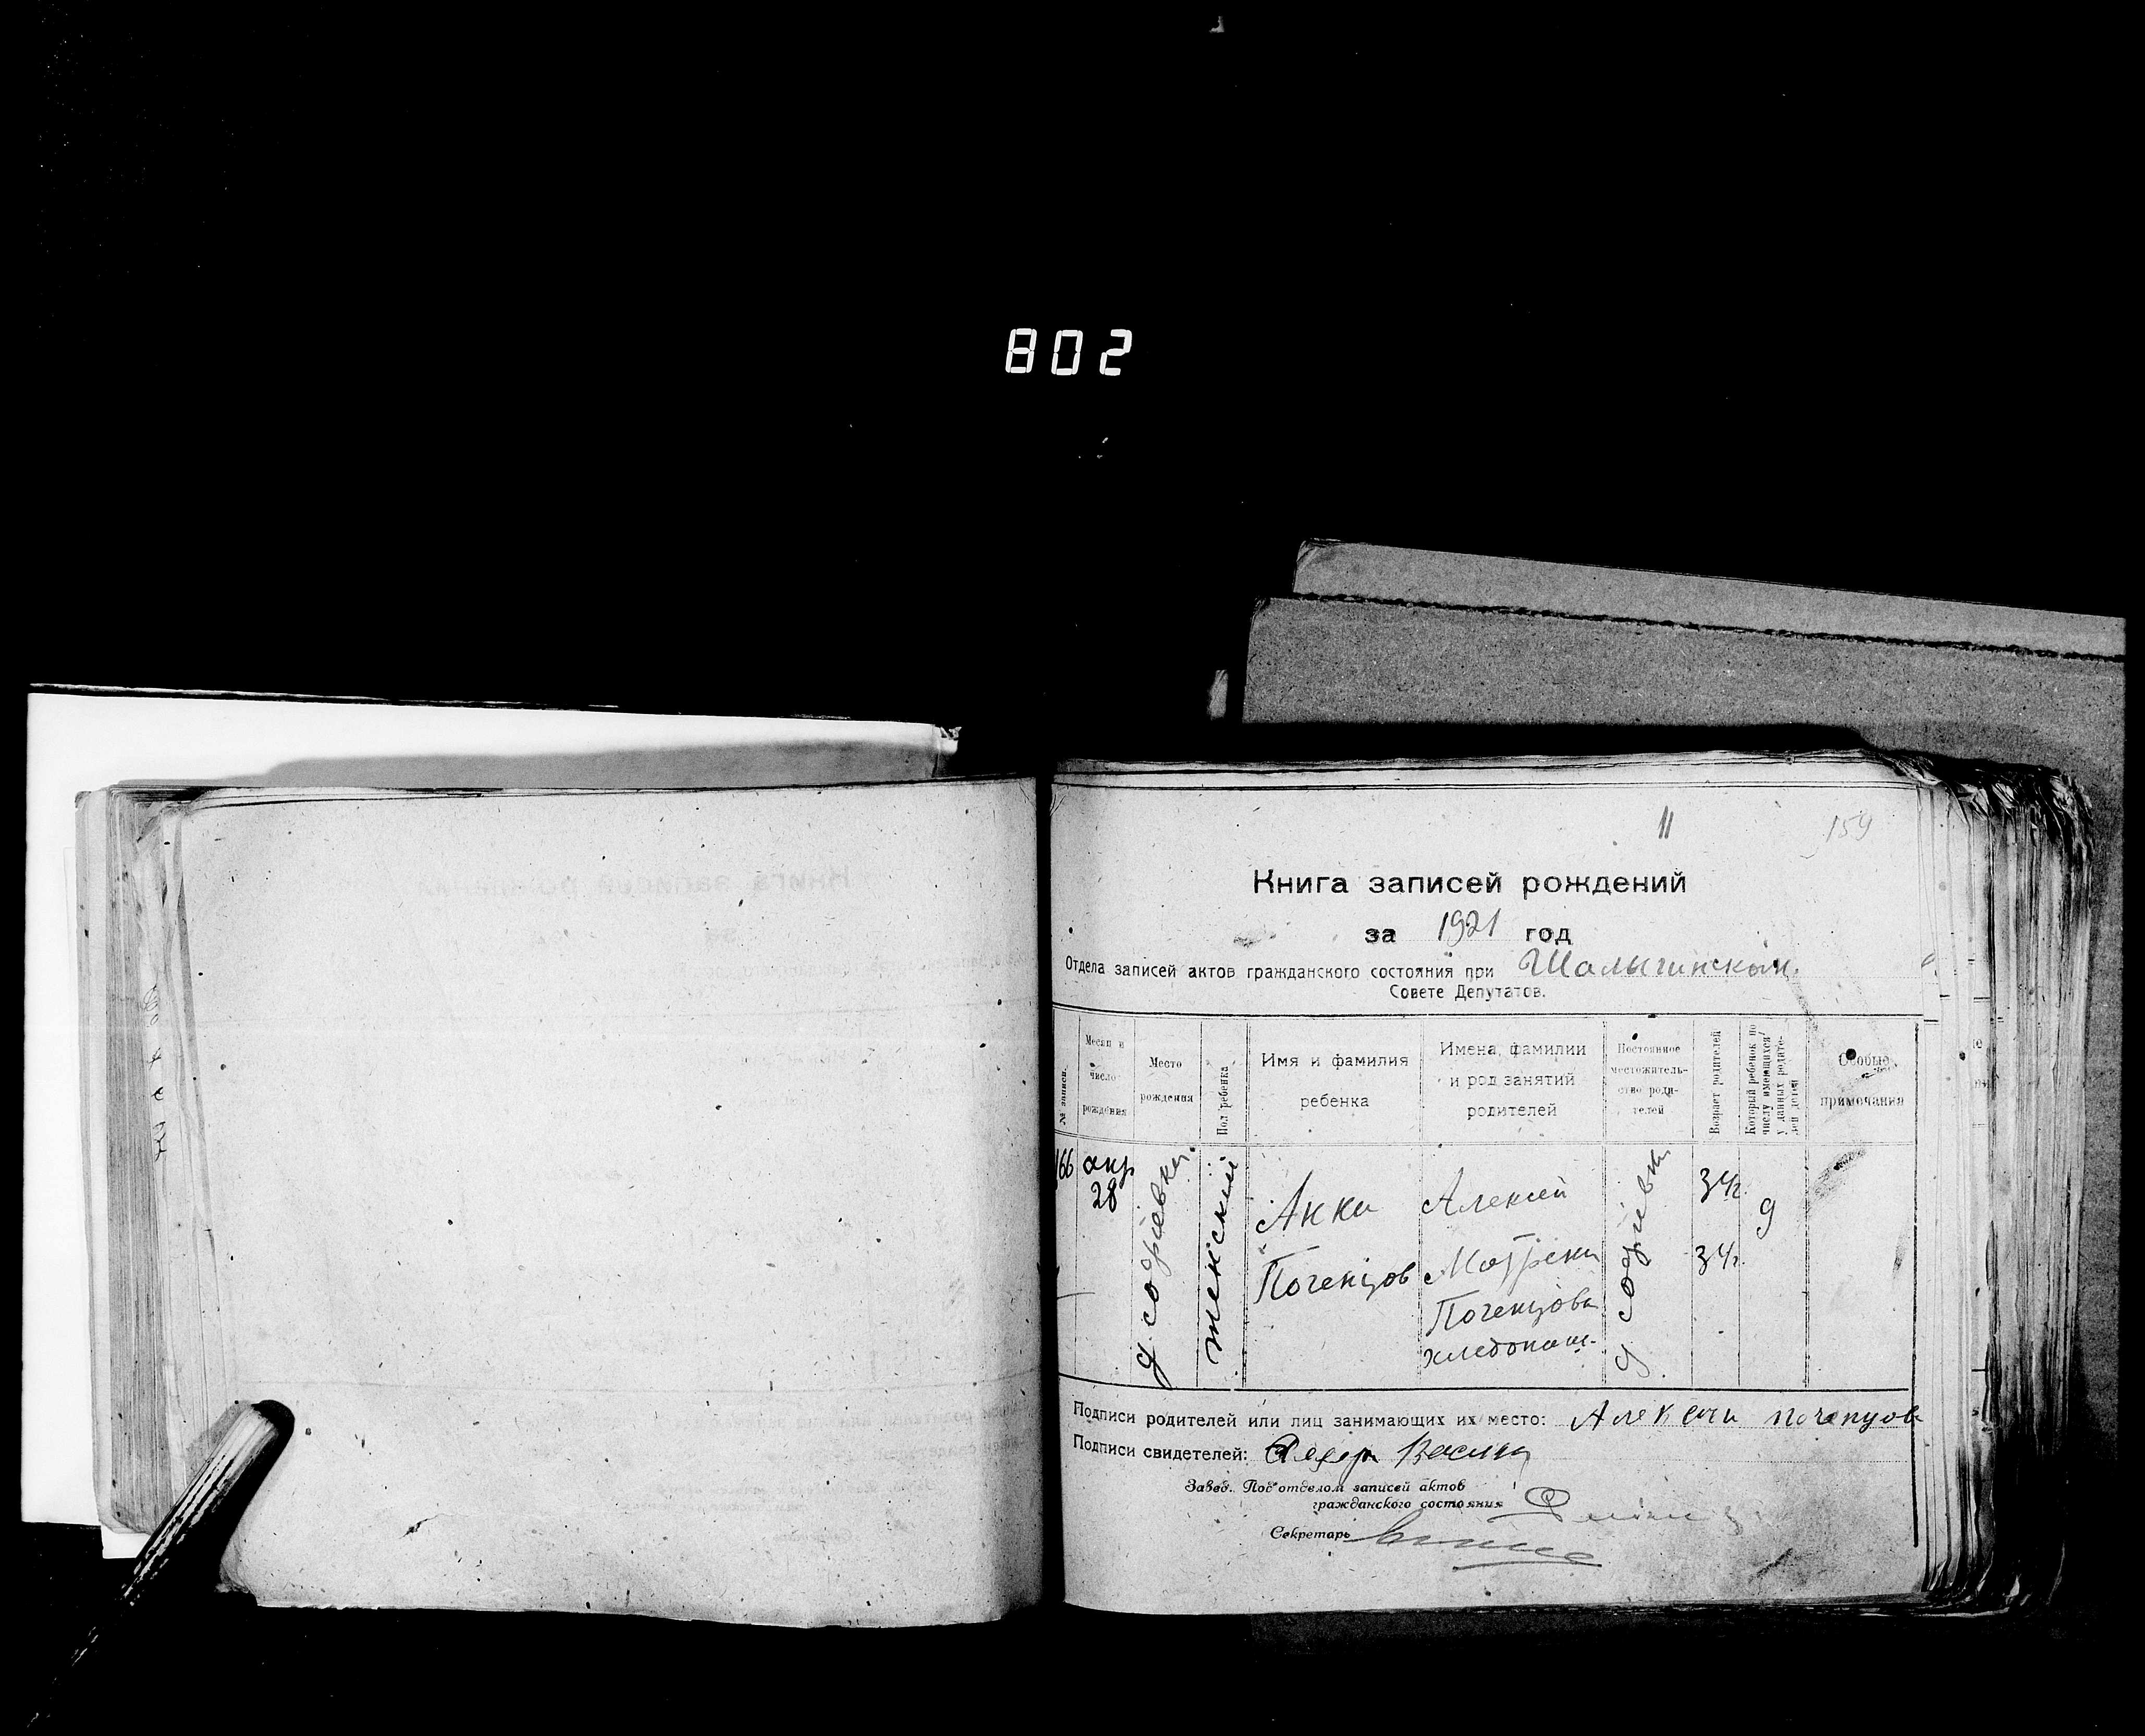 802
11
159
Книга записей рождений
за 1921 год
Отдела записей актов гражданского состояния при Шалыгинском
Совете Депутатов.
№ записи.
Месяц и число рождения
Место рождения
Пол ребенка
Имя и фамилия ребенка
Имена, фамилии и род занятий родителей
Постоянное местожительство родителей
Возраст родителей
Который ребенок по числу имеющихся у данных родителей детей
Особые примечания
166
апр 28
д. софиевка
женский
Анна
Поченцов
Алексей
Матрена
Поченцова
хлебопаш.
д софиевка
34 г.
34 г.
9
Подписи родителей или лиц занимающих их место: Алексей Поченцов
Подписи свидетелей:
Завед. Под'отделом записей актов
гражданского состояния
Секретарь